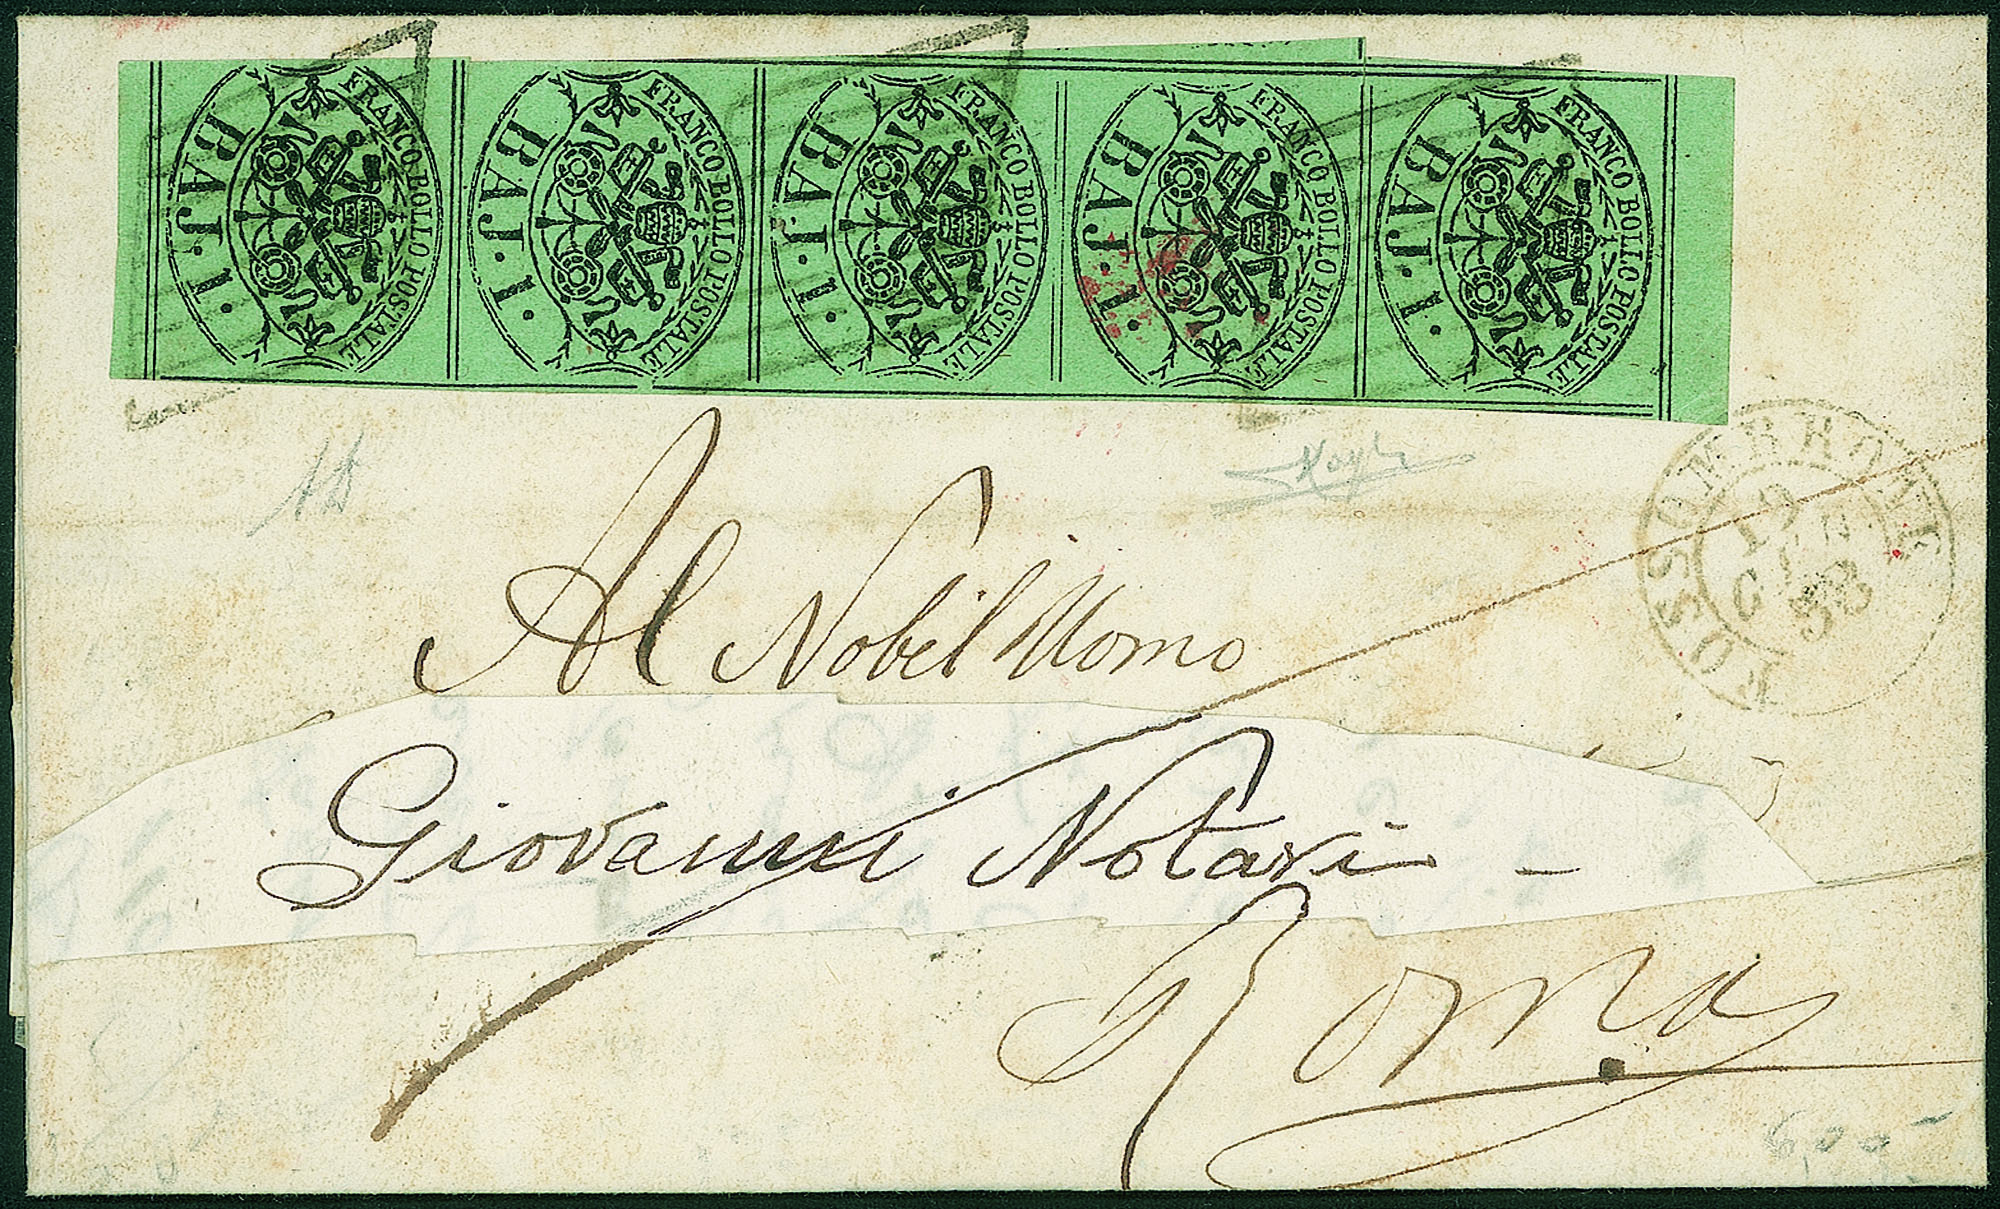 FRANCO BOLLO POSTALE
BAJ·1·
FRANCO BOLLO POSTALE
BAJ·1·
FRANCO BOLLO POSTALE
BAJ·1·
FRANCO BOLLO POSTALE
BAJ·1·
FRANCO BOLLO POSTALE
BAJ·1·
FOSSOMBRONE
19
58
Al Nobil Uomo
Giovanni Notari -
Roma